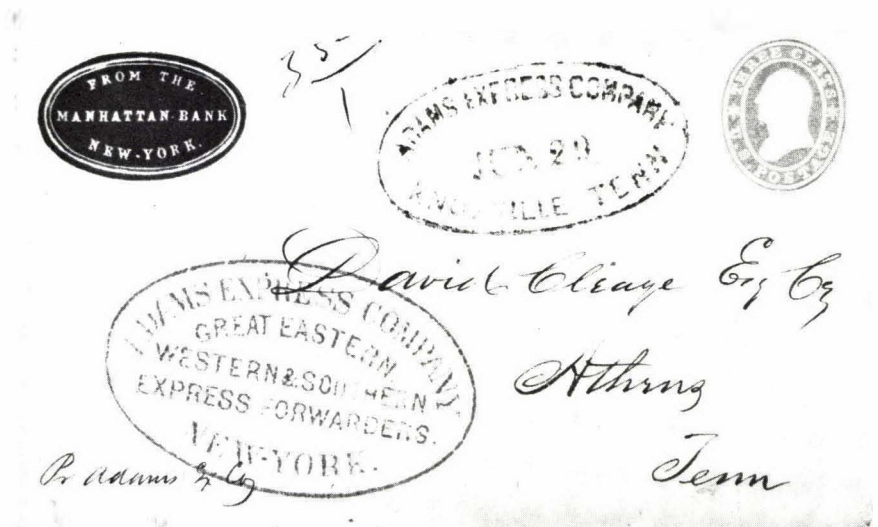 FROM THE
MANHATTAN-BANK
NEW-YORK.
35/1
ADAMS EXPRESS COMPANY
JUN 20
KNOXVILLE TENN
THREE CENTS
U.S. POSTAGE
David Cleage Esq Cg
Athens
Tenn
ADAMS EXPRESS COMPANY
GREAT EASTERN
WESTERN & SOUTHERN
EXPRESS FORWARDERS.
NEW-YORK.
Pr Adams Ex Co